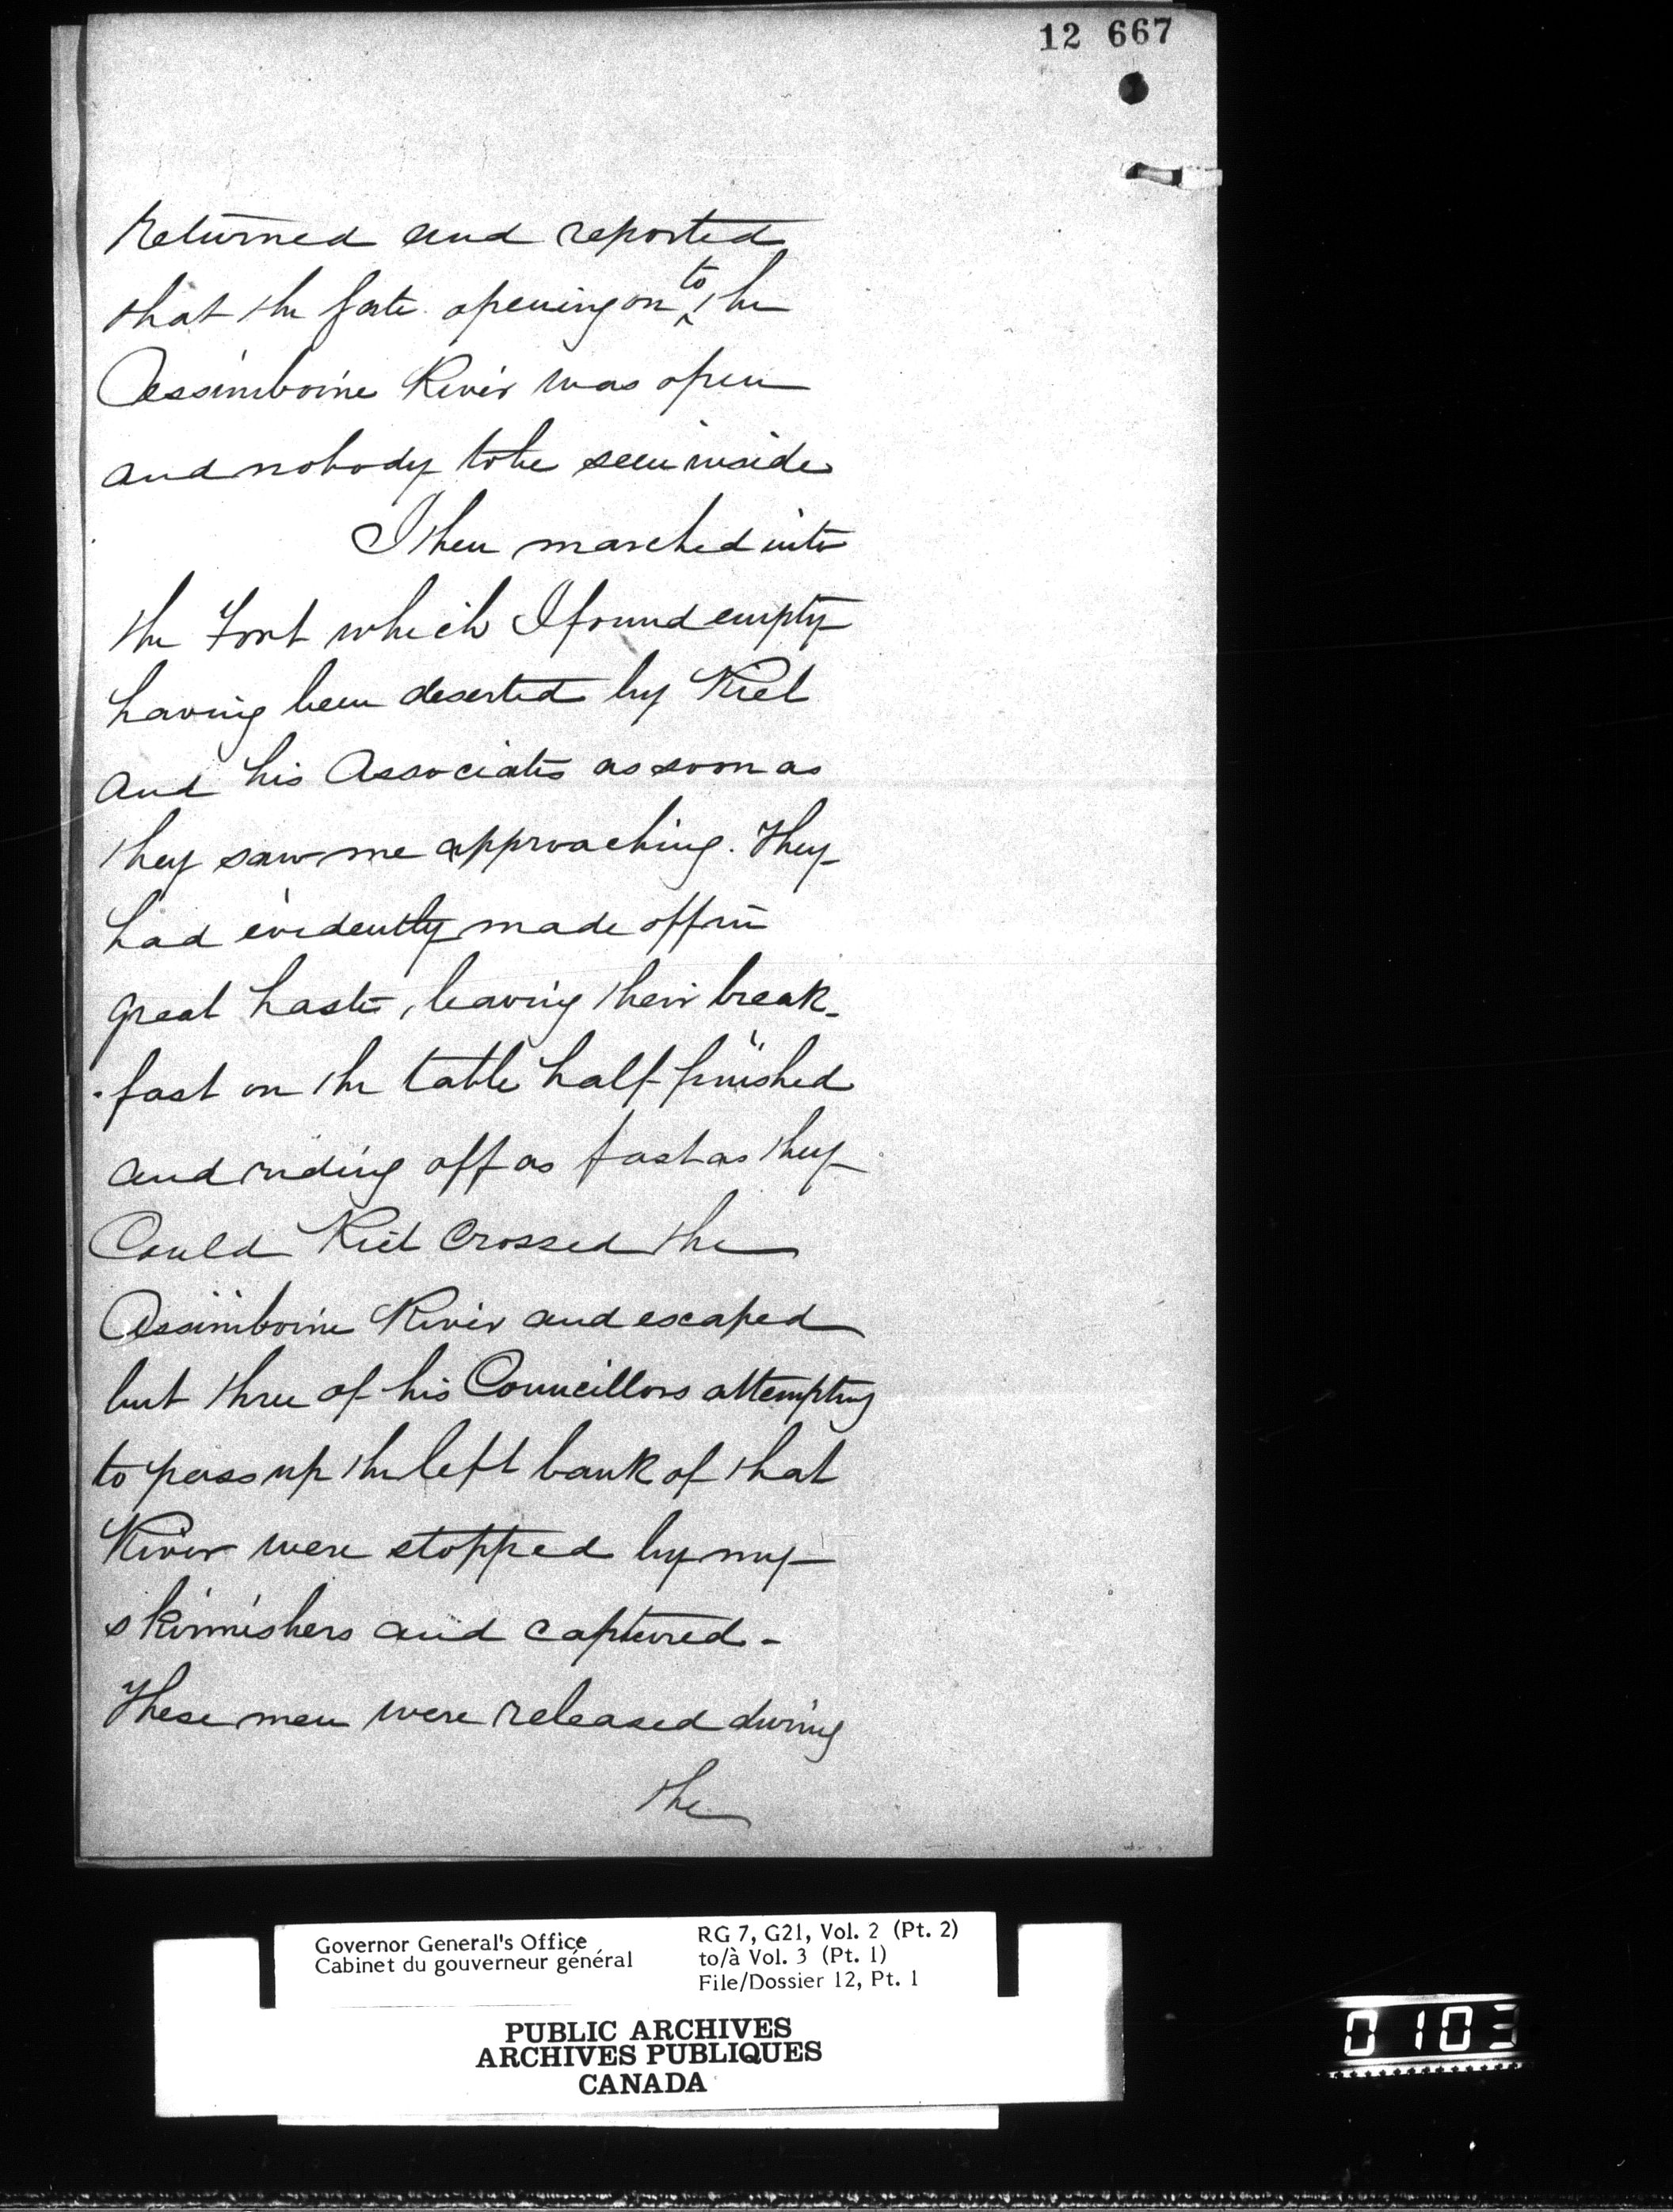 12 667
returned and reported
that the gate opening on to the
Assiniboine River was open
and nobody to be seen inside
I then marched into
the Fort which I found empty
having been deserted by Riel
and his Associates as soon as
they saw me approaching. They
had evidently made off in
great haste, leaving their break-
-fast on the table half finished
and riding off as fast as they
Could Riel Crossed the
Assiniboine River and escaped
but three of his Councillors attempting
to pass up the left bank of that
River were stopped by my
skirmishers and captured -
These men were released during
the
Governor General's Office
Cabinet du gouverneur général
RG 7, G21, Vol. 2 (Pt. 2)
to/à Vol. 3 (Pt. 1)
File/Dossier 12, Pt. 1
PUBLIC ARCHIVES
ARCHIVES PUBLIQUES
CANADA
0103